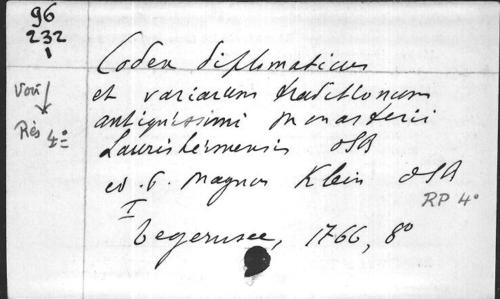 96
232
1
Voir
Rés 4º
Codex diplomaticus
et variarum traditionum
antiquissimi monasterii
Laurisheimensis OSB
ed. P. Magnus Klein OSB
RP 4º
I
Tegernsee, 1766, 8º